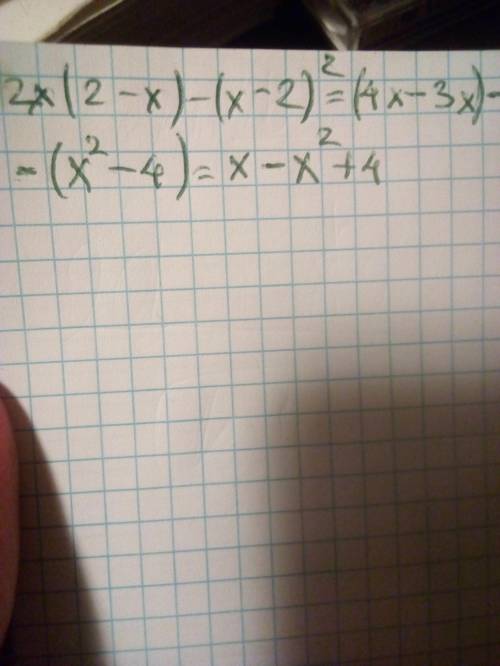 2x(2-x)-(x-2)²=(4x-3x)-
-(x²-4)=x-x²+4